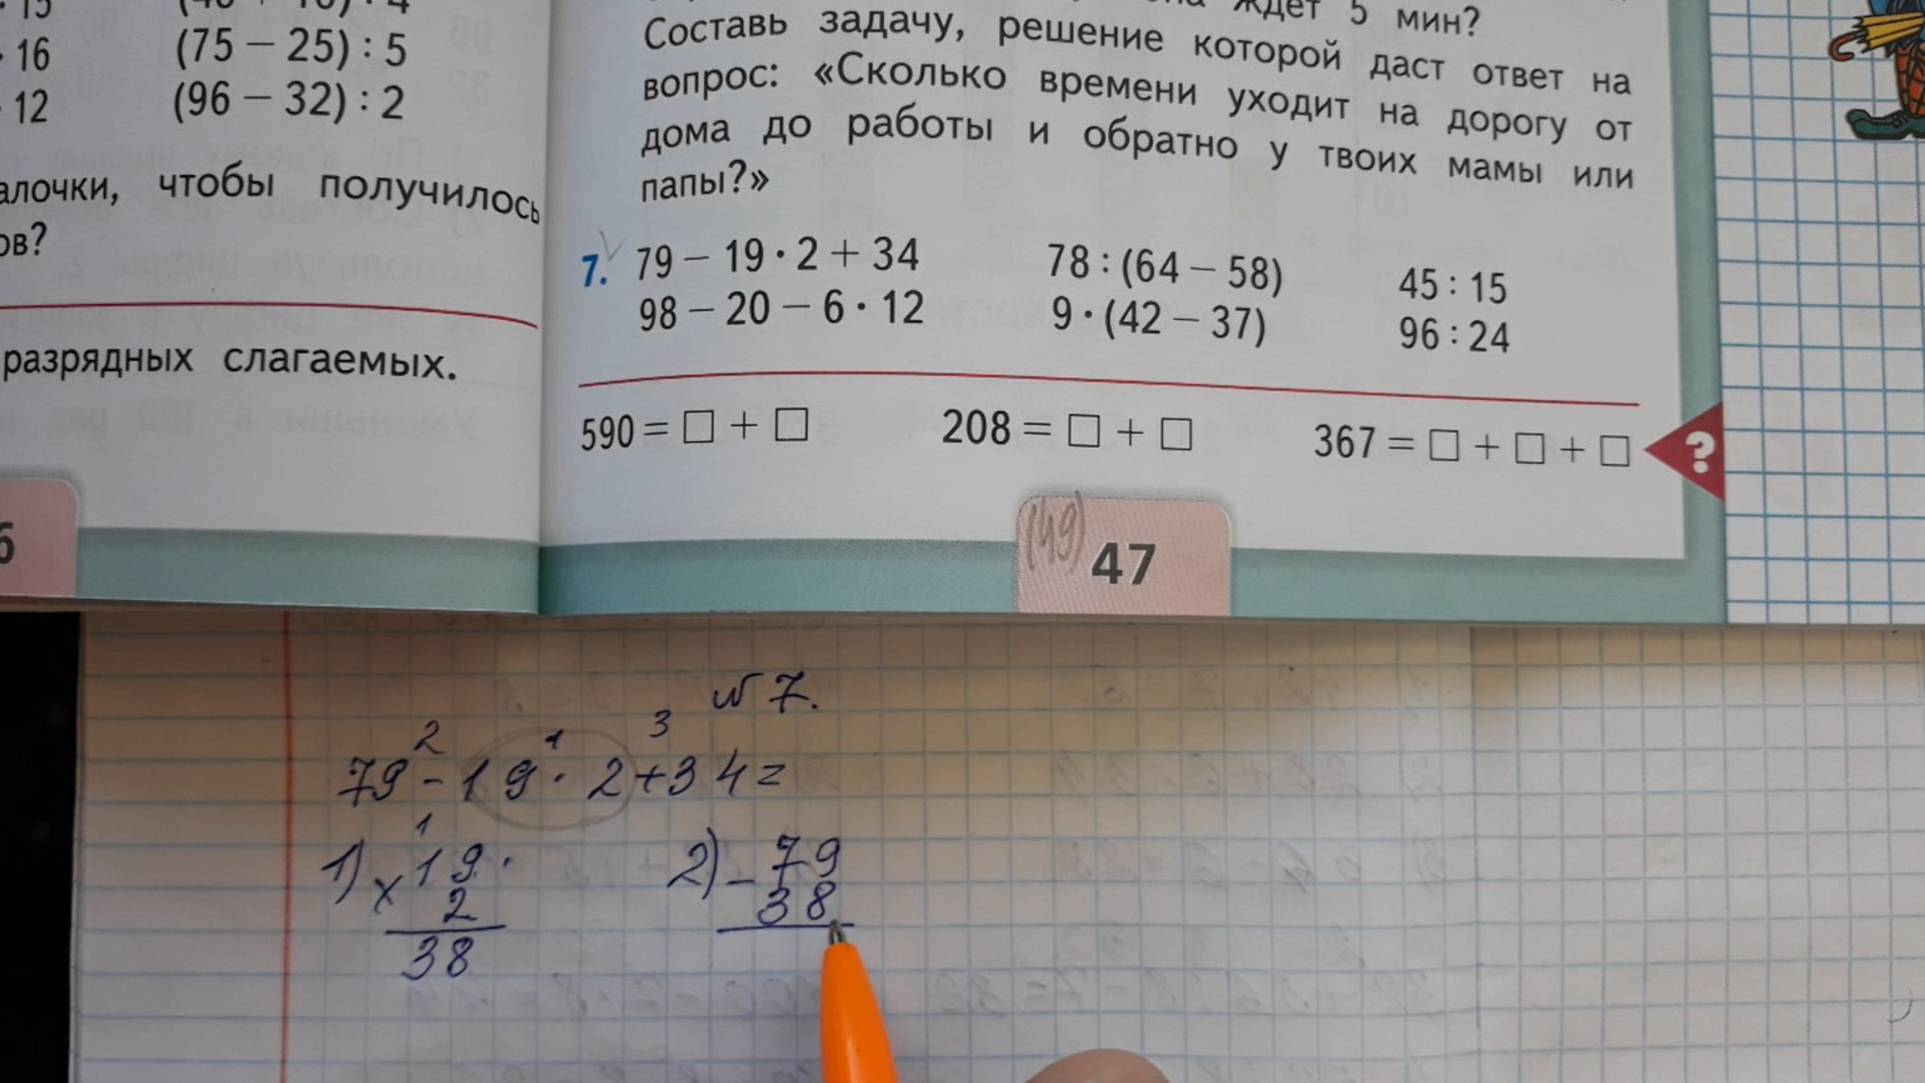 15
16
(75 – 25) : 5
12
(96 – 32) : 2
алочки, чтобы получилось
ов?
разрядных слагаемых.
6
ждёт 5 мин?
Составь задачу, решение которой даст ответ на
вопрос: «Сколько времени уходит на дорогу от
дома до работы и обратно у твоих мамы или
папы?»
7. 79 – 19 · 2 + 34 78 : (64 – 58) 45 : 15
98 – 20 – 6 · 12 9 · (42 – 37) 96 : 24
590 = □ + □ 208 = □ + □ 367 = □ + □ + □ ?
(49) 47
№ 7.
2 1 3
79 - 19 · 2 + 34 =
1
1) × 19 · 2) - 79
2 38
38